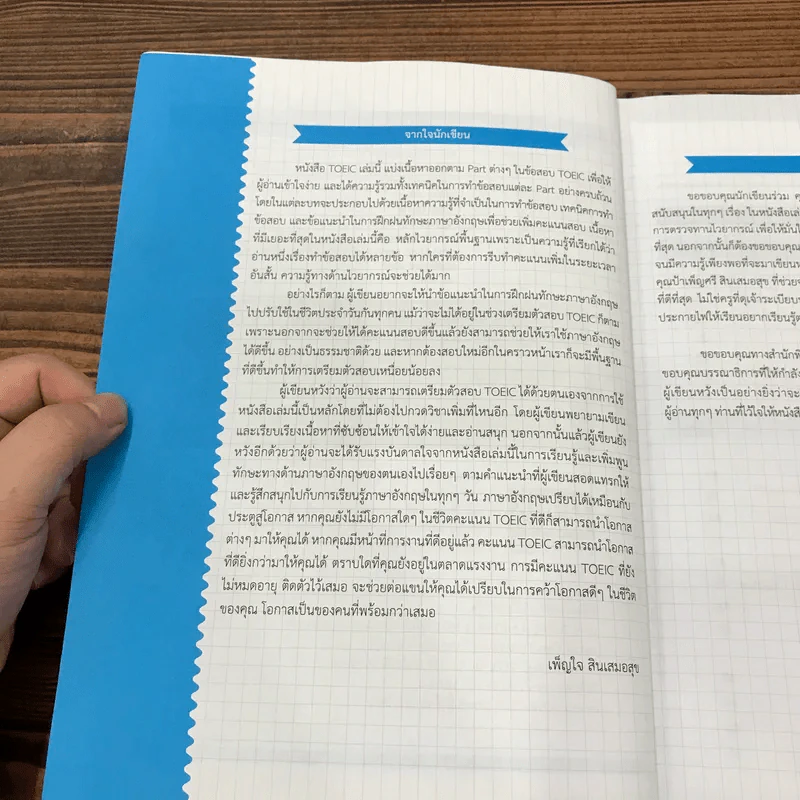 จากใจนักเขียน
หนังสือ TOEIC เล่มนี้ แบ่งเนื้อหาออกตาม Part ต่างๆ ในข้อสอบ TOEIC เพื่อให้
ผู้อ่านเข้าใจง่าย และได้ความรู้รวมทั้งเทคนิคในการทำข้อสอบแต่ละ Part อย่างครบถ้วน
โดยในแต่ละบทจะประกอบไปด้วยเนื้อหาความรู้ที่จำเป็นในการทำข้อสอบ เทคนิคการทำ
ข้อสอบ และข้อแนะนำในการฝึกฝนทักษะภาษาอังกฤษเพื่อช่วยเพิ่มคะแนนสอบ เนื้อหา
ที่มีเยอะที่สุดในหนังสือเล่มนี้คือ หลักไวยากรณ์พื้นฐานเพราะเป็นความรู้ที่เรียกได้ว่า
อ่านหนึ่งเรื่องทำข้อสอบได้หลายข้อ หากใครที่ต้องการรีบทำคะแนนเพิ่มในระยะเวลา
อันสั้น ความรู้ทางด้านไวยากรณ์จะช่วยได้มาก
อย่างไรก็ตาม ผู้เขียนอยากจะให้นำข้อแนะนำในการฝึกฝนทักษะภาษาอังกฤษ
ไปปรับใช้ในชีวิตประจำวันกันทุกคน แม้ว่าจะไม่ได้อยู่ในช่วงเตรียมตัวสอบ TOEIC ก็ตาม
เพราะนอกจากจะช่วยให้ได้คะแนนสอบดีขึ้นแล้วยังสามารถช่วยให้เราใช้ภาษาอังกฤษ
ได้ดีขึ้น อย่างเป็นธรรมชาติด้วย และหากต้องสอบใหม่อีกในคราวหน้าเราก็จะมีพื้นฐาน
ที่ดีขึ้นทำให้การเตรียมตัวสอบเหนื่อยน้อยลง
ผู้เขียนหวังว่าผู้อ่านจะสามารถเตรียมตัวสอบ TOEIC ได้ด้วยตนเองจากการใช้
หนังสือเล่มนี้เป็นหลักโดยที่ไม่ต้องไปกวดวิชาเพิ่มที่ไหนอีก โดยผู้เขียนพยายามเขียน
และเรียบเรียงเนื้อหาที่ซับซ้อนให้เข้าใจได้ง่ายและอ่านสนุก นอกจากนั้นแล้วผู้เขียนยัง
หวังอีกด้วยว่าผู้อ่านจะได้รับแรงบันดาลใจจากหนังสือเล่มนี้ในการเรียนรู้และเพิ่มพูน
ทักษะทางด้านภาษาอังกฤษของตนเองไปเรื่อยๆ ตามคำแนะนำที่ผู้เขียนสอดแทรกให้
และรู้สึกสนุกไปกับการเรียนรู้ภาษาอังกฤษในทุกๆ วัน ภาษาอังกฤษเปรียบได้เหมือนกับ
ประตูสู่โอกาส หากคุณยังไม่มีโอกาสใดๆ ในชีวิตคะแนน TOEIC ที่ดีก็สามารถนำโอกาส
ต่างๆ มาให้คุณได้ หากคุณมีหน้าที่การงานที่ดีอยู่แล้ว คะแนน TOEIC สามารถนำโอกาส
ที่ดียิ่งกว่ามาให้คุณได้ ตราบใดที่คุณยังอยู่ในตลาดแรงงาน การมีคะแนน TOEIC ที่ยัง
ไม่หมดอายุ ติดตัวไว้เสมอ จะช่วยต่อแขนให้คุณได้เปรียบในการคว้าโอกาสดีๆ ในชีวิต
ของคุณ โอกาสเป็นของคนที่พร้อมกว่าเสมอ
เพ็ญใจ สินเสมอสุข
ขอขอบคุณนักเขียนร่วม
สนับสนุนในทุกๆ เรื่อง ในหนังสือเล่
การตรวจทานไวยากรณ์ เพื่อให้มั่นใ
ที่สุด นอกจากนั้นก็ต้องขอขอบคุณ
จนมีความรู้เพียงพอที่จะมาเขียนห
คุณป้าเพ็ญศรี สินเสมอสุข ที่ช่วยจ
ที่ดีที่สุด ไม่ใช่ครูที่ดุเจ้าระเบียบ
ประกายไฟให้เรียนอยากเรียนรู้ต
ขอขอบคุณทางสำนักพิ
ขอบคุณบรรณาธิการที่ให้กำลัง
ผู้เขียนหวังเป็นอย่างยิ่งว่าจะ
ผู้อ่านทุกๆ ท่านที่ไว้ใจให้หนังสื